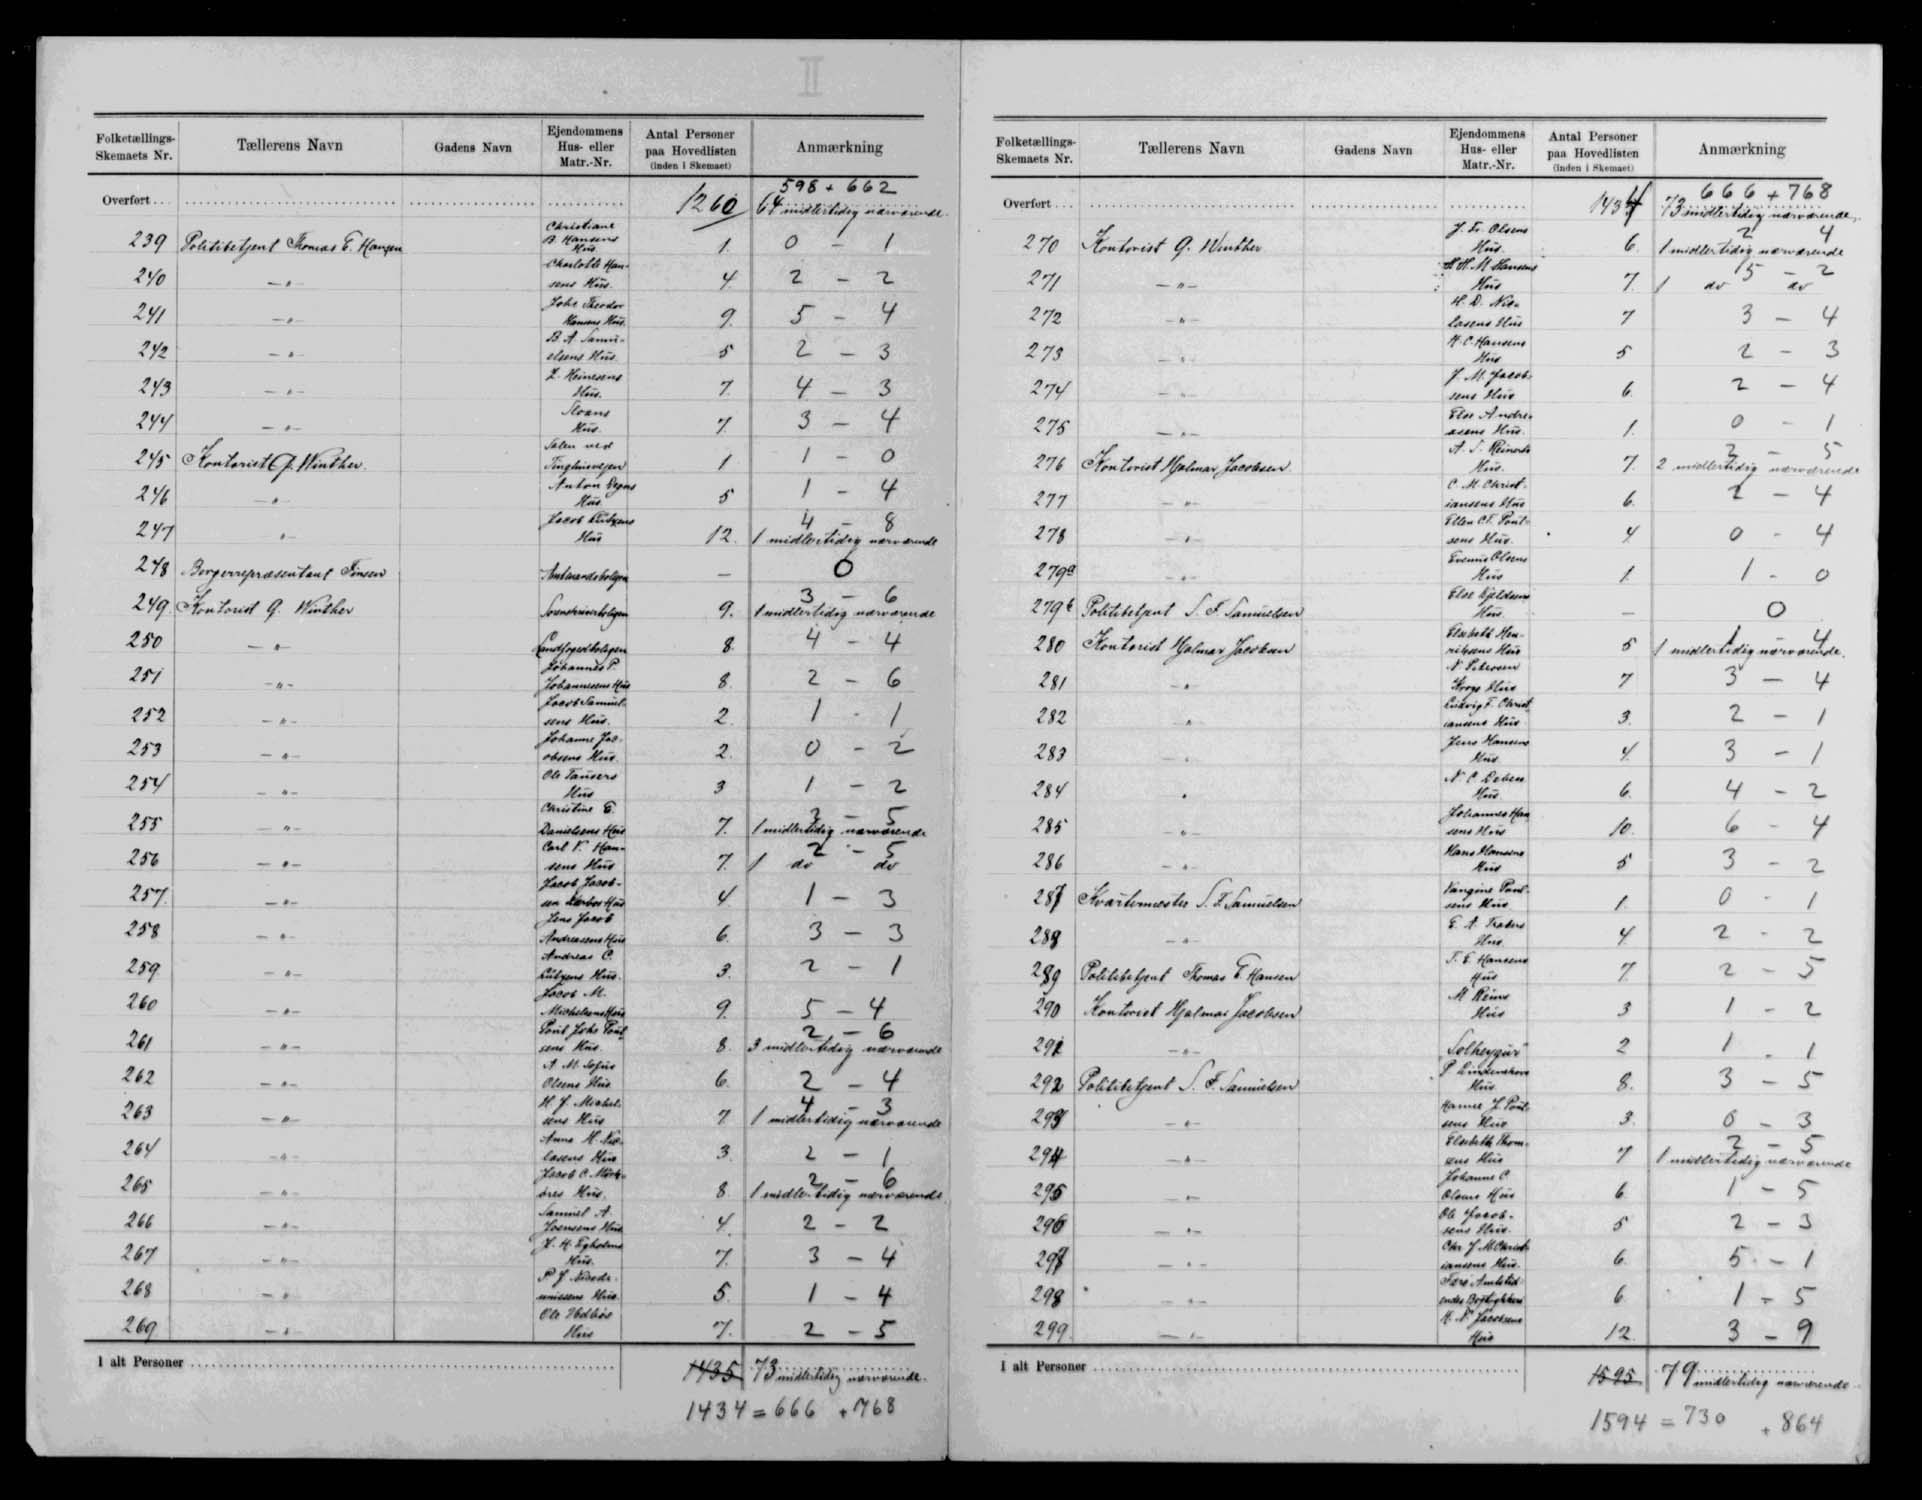 II
Folketællings-Skemaets Nr. Tællerens Navn Gadens Navn Ejendommens Hus- eller Matr.-Nr. Antal Personer paa Hovedlisten (inden i Skemaet) Anmærkning
598 + 662
Overført 1260 64 midlertidig nærværende.
239 Politibetjent Thomas E. Hansen Christiane B. Hansens Hus. 1. 0 – 1
240 —„— Charlotte Hansens Hus. 4. 2 – 2
241 —„— Johs Theodor Hansens Hus. 9. 5 – 4
242 —„— B. A. Samuelsens Hus. 5 2 – 3
243 —„— Z. Heinesens Hus. 7. 4 – 3
244 —„— Sloans Hus. 7. 3 – 4
245 Kontorist G. Winther. Salen ved Tinghusvejen 1 1 – 0
246 —„— Anton Degns Hus. 5 1 – 4
4 – 8
247 —„— Jacob Lützens Hus 12. 1 midlertidig nærværende
248 Borgerrepræsentant Finsen Amtmandsboligen — 0
3 – 6
249. Kontorist G. Winther Sorenskriverboligen 9. 1 midlertidig nærværende
250 —„— Landfogedboligen 8. 4 – 4
251 —„— Johannes P. Johannesens Hus 8. 2 – 6
252 —„— Jacob Samuelsens Hus. 2. 1 - 1
253 —„— Johanne Jacobsens Hus. 2. 0 – 2
254 —„— Ole Tausens Hus 3 1 – 2
3 – 5
255 —„— Christine E. Danielsens Hus 7. 1 midlertidig nærværende
2 – 5
256 —„— Carl V. Hansens Hus 7. 1 do do
257. —„— Jacob Jacobsen Hus 4. 1 – 3
258 —„— Jens Jacob Andreasens Hus 6. 3 – 3
259 —„— Andreas C. Lützens Hus. 3. 2 – 1
260 —„— Jacob M. Michelsens Hus 9. 5 – 4
2 – 6
261 —„— Poul Johs Poulsens Hus. 8. 3 midlertidig nærværende
262 —„— A. M. Sofus Olsens Hus 6. 2 – 4
4 – 3
263 —„— H. J. Michelsens Hus 7 1 midlertidig nærværende
264 —„— Anna H. Niclasens Hus 3. 2 – 1
2 – 6
265 —„— Jacob C. Mørkøres Hus. 8. 1 midlertidig nærværende
266 —„— Samuel A. Joensens Hus 4. 2 – 2
267 —„— J. H. Egholms Hus. 7. 3 – 4
268 —„— P. J. Nicodemussens Hus. 5. 1 – 4
269 —„— Ole Hus 7. 2 – 5
I alt Personer 1435 73 midlertidig nærværende.
1434 = 666 + 768
Folketællings-Skemaets Nr. Tællerens Navn Gadens Navn Ejendommens Hus- eller Matr.-Nr. Antal Personer paa Hovedlisten (inden i Skemaet) Anmærkning
666 + 768
Overført 1434 73 midlertidig nærværende.
2 4
270 Kontorist G. Winther J. Fr. Olsens Hus. 6. 1 midlertidig nærværende
5 – 2
271 —„— H. M. Hansens Hus 7. 1 do do
272 —„— H. D. Niclasens Hus 7 3 – 4
273 —„— H. C. Hansens Hus 5 2 – 3
274 —„— J. M. Jacobsens Hus 6. 2 – 4
275 —„— Else Andreasens Hus. 1. 0 – 1
2 – 5
276 Kontorist Hjalmar Jacobsen A. S. Reinerts Hus. 7. 2 midlertidig nærværende
277 —„— C. M. Christiansens Hus 6. 2 – 4
278 —„— Ellen Poulsens Hus. 4. 0 - 4
279a —„— Olsens Hus 1. 1 - 0
279b Politibetjent S. F. Samuelsen Else Hus. — 0
1 – 4
280 Kontorist Hjalmar Jacobsen Elsebeth Henriksens Hus 5 1 midlertidig nærværende.
281 —„— N. Petersen Krogs Hus 7 3 – 4
282 „ Ludvig F. Christiansens Hus 3. 2 – 1
283 —„— Jens Hansens Hus. 4. 3 – 1
284 „ N. C. Debes Hus. 6. 4 – 2
285 —„— Johannes Hansens Hus 10. 6 – 4
286 —„— Hans Hansens Hus 5 3 – 2
287 Kvartermester S. F. Samuelsen Poulsens Hus 1. 0 - 1
288 —„— E. A. Hus. 4. 2 - 2
289 Politibetjent Thomas E. Hansen T. E. Hansens Hus 7. 2 – 5
290 Kontorist Hjalmar Jacobsen M. Reins Hus 3 1 – 2
291 —„— 2 1 - 1
292 Politibetjent S. F. Samuelsen P. Lindenskovs Hus 8. 3 – 5
293 —„— Hanne J. Poulsens Hus 3. 0 – 3
2 – 5
294 —„— Elsebeth Thomsens Hus 7 1 midlertidig nærværende
295 —„— Johanne C. Olsens Hus 6. 1 – 5
296 —„— Ole Jacobsens Hus. 5 2 – 3
297 —„— Chr. J. M. Christiansens Hus. 6. 5 – 1
298 —„— Færø Amtstidendes Bogtrykkeri 6. 1 – 5
299. —„— H. N. Jacobsens Hus 12. 3 – 9
I alt Personer 1595 79 midlertidig nærværende
1594 = 730 + 864